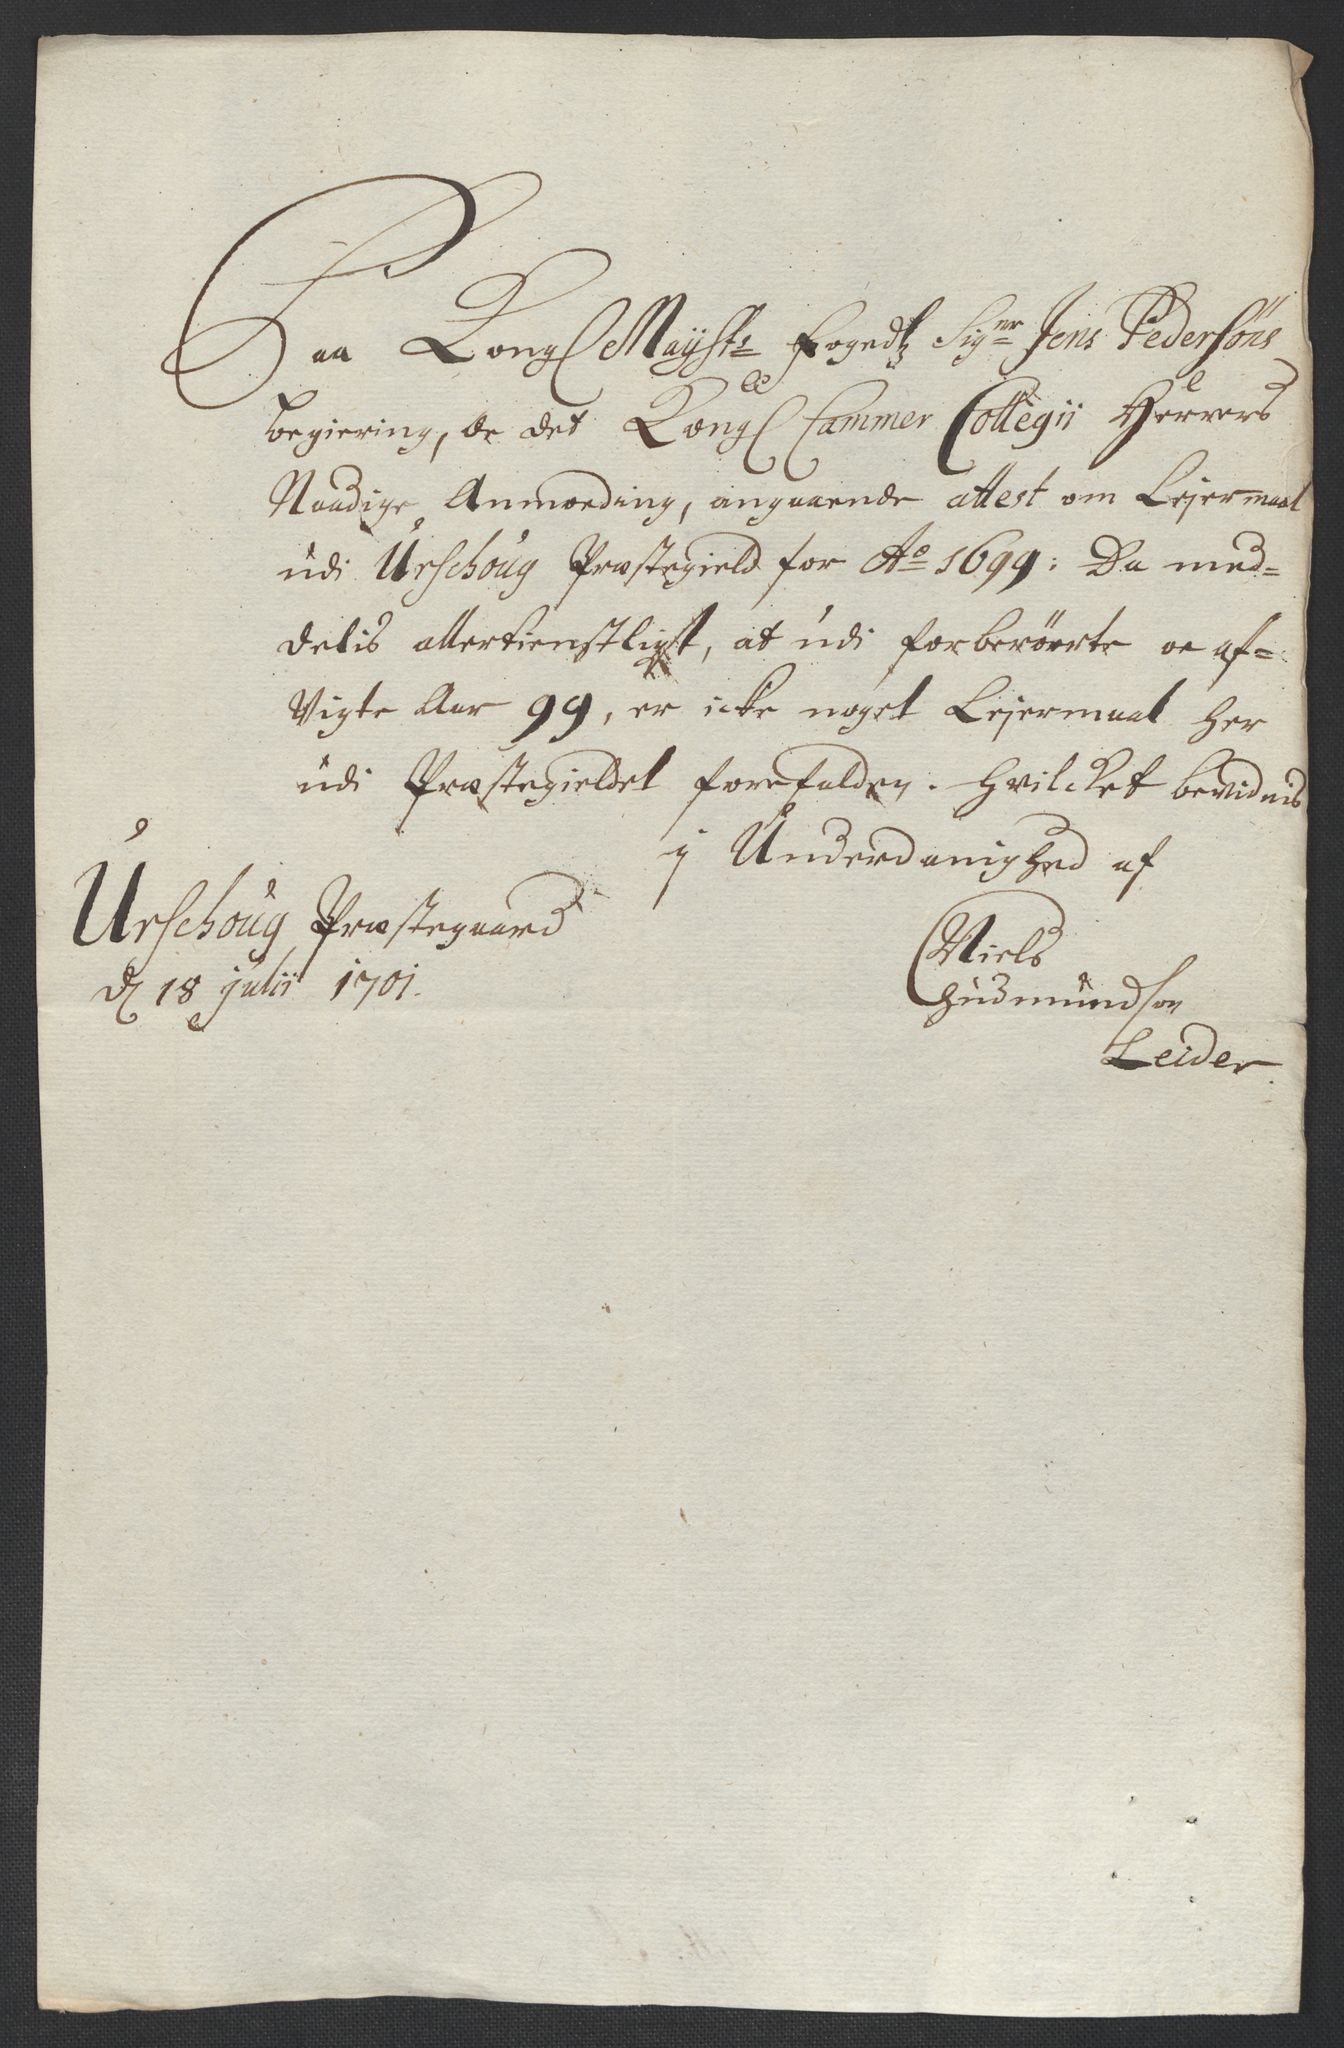 Paa Kongl Mayst:s Fogedtz Sig:nr Jens Pedersøns
begiering, oc det Kongl Cammer Collegii Herrers
Naadige Anmoeding, angaaende attest om Leiermaal
udi Urschoug Præstegield for A:o 1699: Da med=
delis allertienstligst, at udi forberørte oc af=
vigte Aar 99, er icke noget Leiermaal her
udi Præstegieldet forefalden. Hvilcket bevidnis
i Underdanighed af
Urschoug Præstegaard
d 18 julii 1701.
Niels
Gudmundsøn
Leider